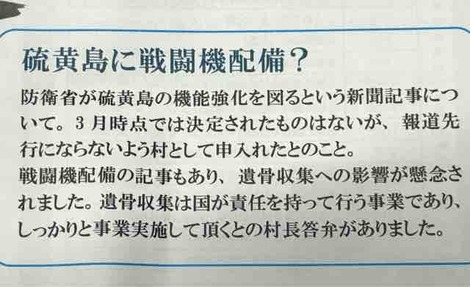 硫黄島に戦闘機配備？
防衛省が硫黄島の機能強化を図るという新聞記事につ
いて。３月時点では決定されたものはないが、報道先
行にならないよう村として申入れたとのこと。
戦闘機配備の記事もあり、遺骨収集への影響が懸念さ
れました。遺骨収集は国が責任を持って行う事業であり、
しっかりと事業実施して頂くとの村長答弁がありました。